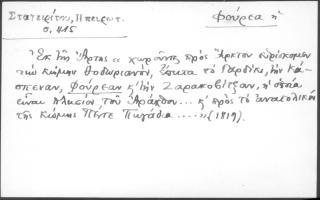 Σταγειρίτου, Ηπειρωτ.
σ. 415
Φούρεα ἡ
Ἐκ τῆς Ἄρτης « χωροῦντες πρὸς Ἄρκτον εὑρίσκομεν
τὴν κώμην Θοδωριανὸν, ἔπειτα τὸ Γαρδίκι, τὴν Κά-
σπεναν, Φούρεαν κ' τὴν Σαρακοβίτζαν, ἡ ὁποία
εἶναι πλησίον τοῦ Ἀράχθου... κ' πρὸς τὸ ἀνατολικὸν
τῆς κώμης Πέντε Πηγάδια....» (1819).